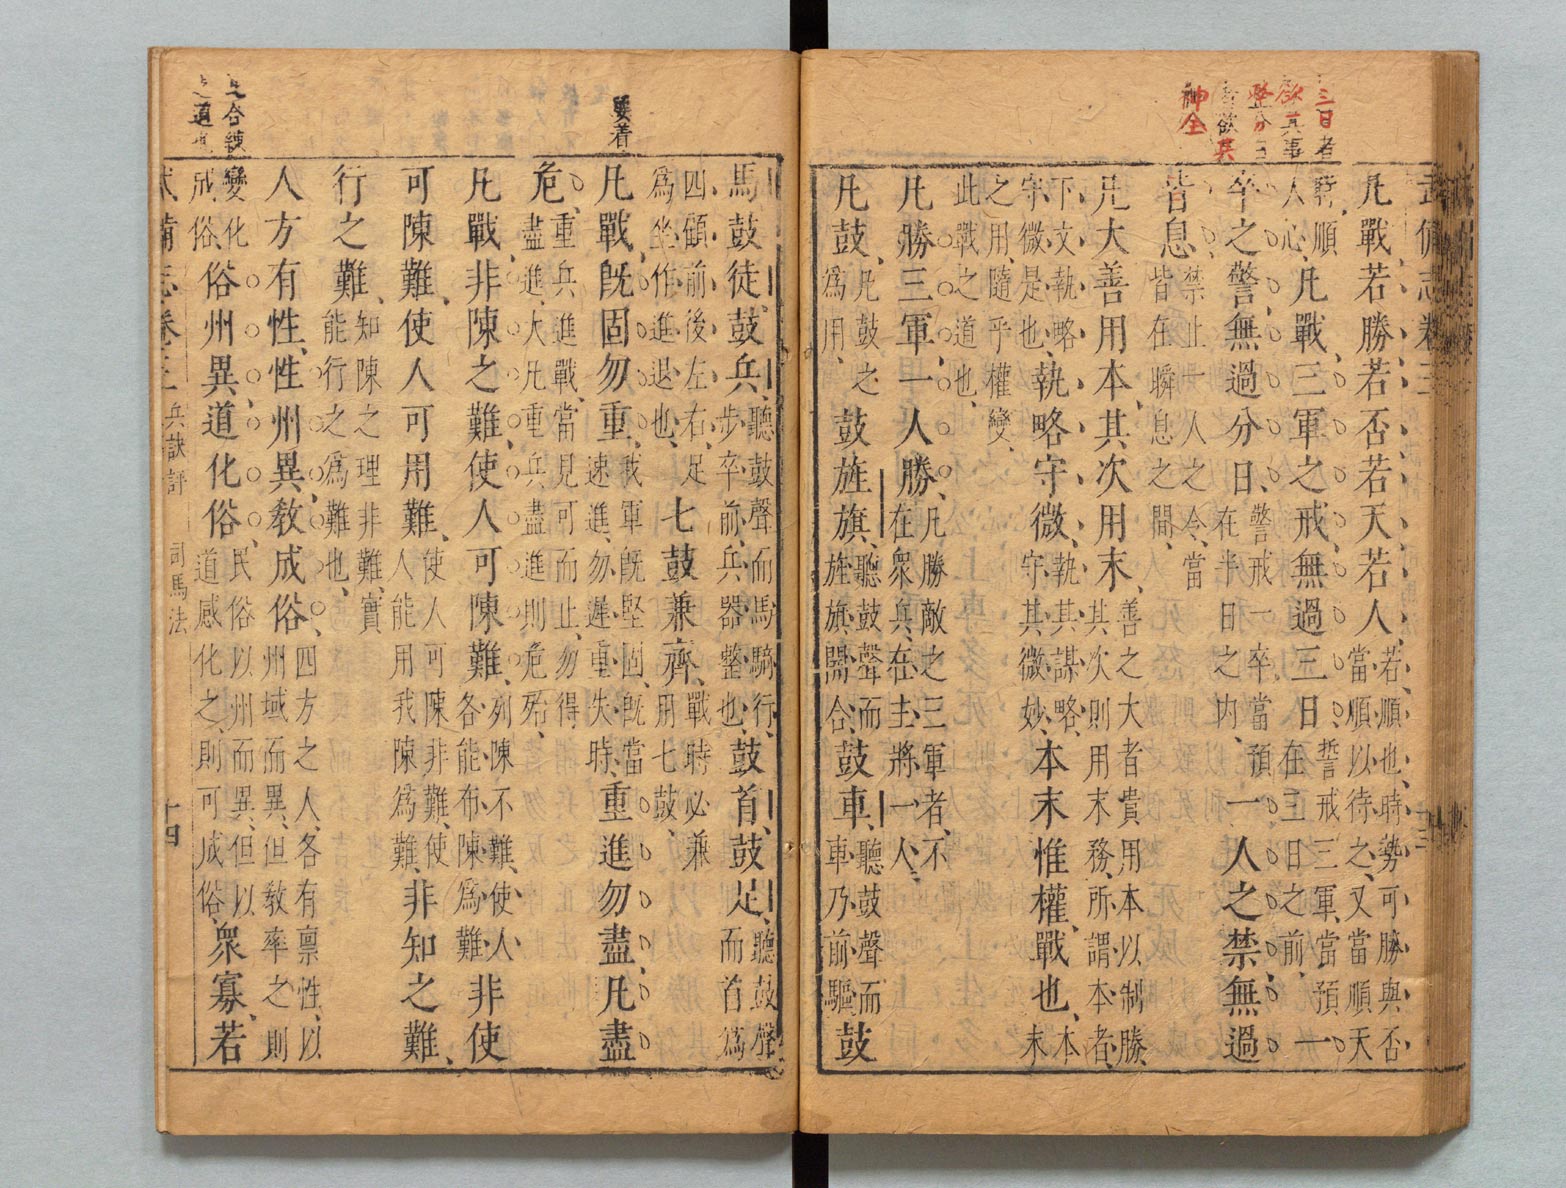 三日者
欲其事
整分日
者欲其
神全
武備志卷三
凡戰若勝若否若天若人若順也時勢可勝與否當順以待之又當順天
時順人心凡戰三軍之戒無過三日誓戒三軍當預在三日之前一
卒之警無過分日警戒一卒當預在半日之内一人之禁無過
皆息禁止一人之令當皆在瞬息之間
凡大善用本其次用末善之大者貴用本以制勝其次則用末務所謂本者
下文執略守微是也執略守微執其謀略守其微妙本末惟權戰也本末
之用隨乎權變此戰之道也
凡勝三軍一人勝凡勝敵之三軍者不在衆兵在主將一人
凡鼓凡鼓之為用鼓旌旗聽鼓聲而旌旗開合鼓車聽鼓聲而車乃前驅鼓
要着
馬鼓徒鼓兵聽鼓聲而馬騎行步卒前兵器整也鼓首鼓足聽鼓聲而首為
四顧前後左右足為坐作進退也七鼓兼齊戰時必兼用七鼓
凡戰既固勿重我軍既堅固既當速進勿遲重失時重進勿盡凡盡
危重兵進戰當見可而止勿得盡進大凡重兵盡進則危殆
凡戰非陳之難使人可陳難列陳不難使人各能布陳為難非使
可陳難使人可用難使人可陳非難使人能用我陳為難非知之難
行之難知陳之理非難實能行之為難也
人方有性性州異教成俗四方之人各有禀性以州域而異但教率之則
合練
之道
變化成俗俗州異道化俗民俗以州而異但以道感化之則可成俗衆寡若
武備志卷三 兵訣評 司馬法 十四